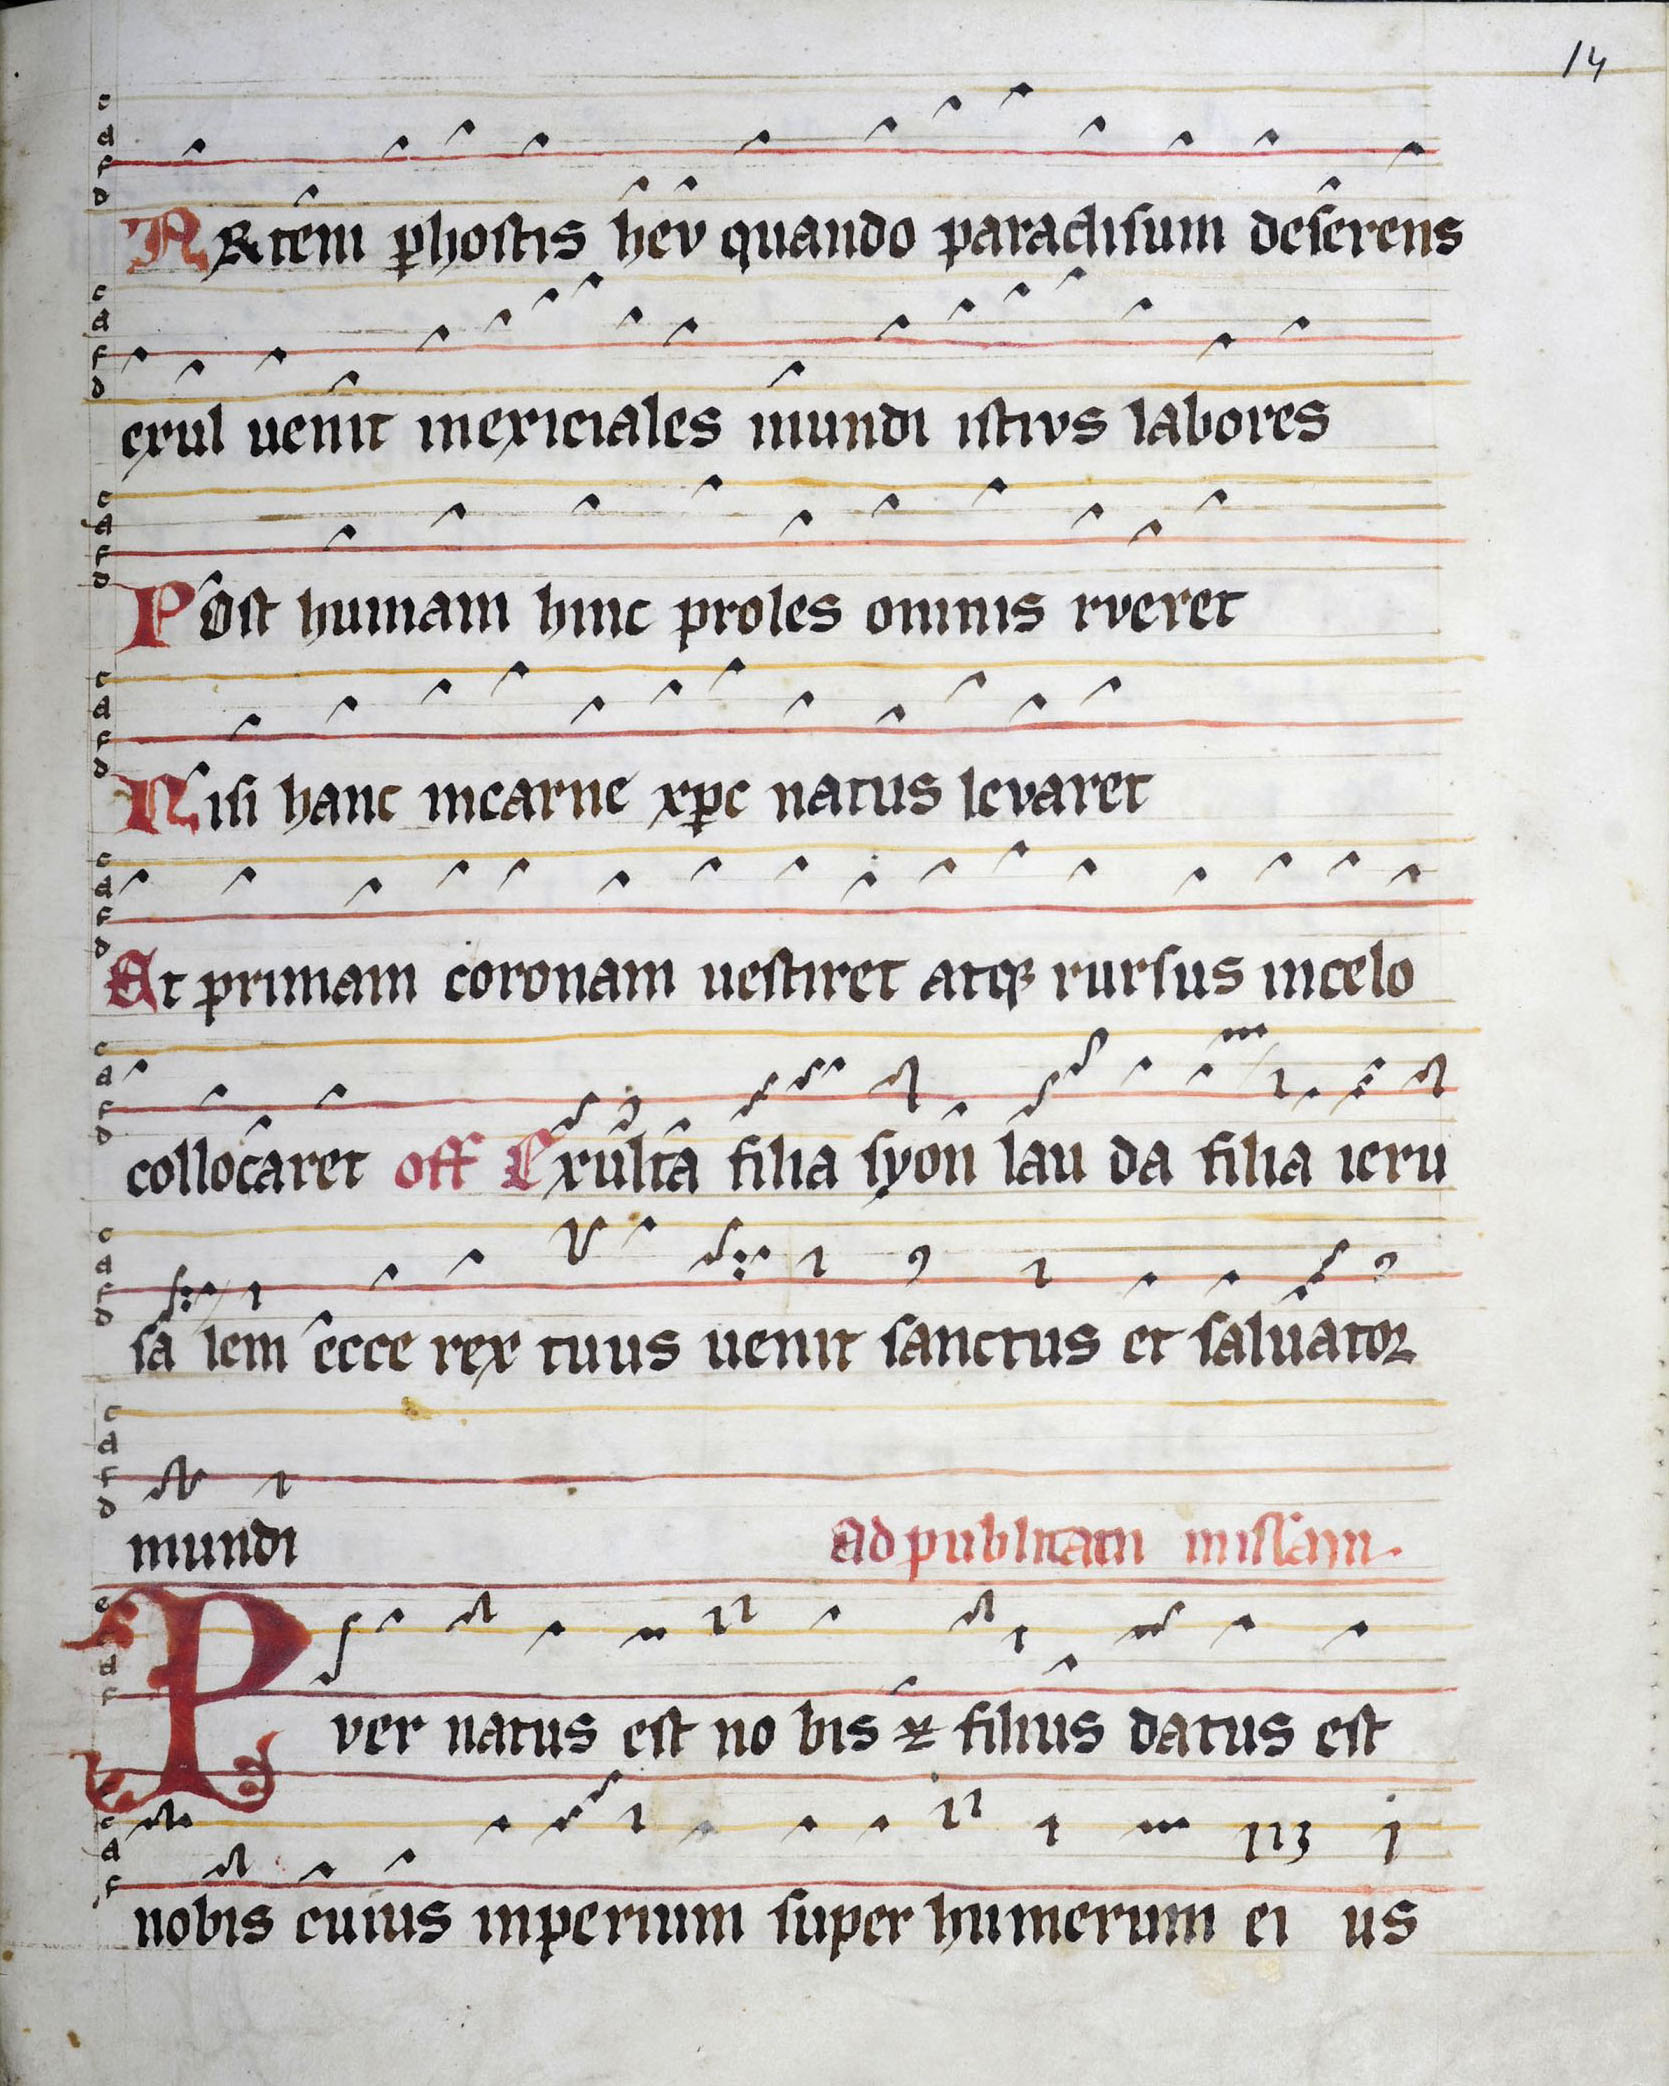 14
N &tem phostis hev quando paradisum deserens
exul uenit inexiciales mundi istivs labores
Post humam hinc proles omnis rveret
Nisi hanc incarne xpc natus levaret
Et primam coronam uestiret atq rursus incelo
collocaret off Exulta filia syon lau da filia ieru
sa lem ecce rex tuus uenit sanctus et saluator
mundi Ad publicam missam.
Pver natus est no bis & filius datus est
nobis cuius inperium super humerum ei us